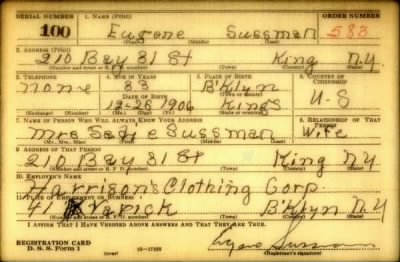 SERIAL NUMBER 1. NAME (Print) ORDER NUMBER
100 Eugene Sussman 583
(First) (Middle) (Last)
2. ADDRESS (Print)
210 Bay 31 St King N.Y.
(Number and street or R. F. D. number) (Town) (County) (State)
3. TELEPHONE 4. AGE IN YEARS 5. PLACE OF BIRTH 6. COUNTRY OF CITIZENSHIP
none 33 B'Klyn
DATE OF BIRTH (Town or county)
12-26 1906 Kings U-S
(Exchange) (Number) (Mo.) (Day) (Yr.) (State or country)
7. NAME OF PERSON WHO WILL ALWAYS KNOW YOUR ADDRESS 8. RELATIONSHIP OF THAT PERSON
Mrs Sadie Sussman Wife
(Mr., Mrs., Miss) (First) (Middle) (Last)
9. ADDRESS OF THAT PERSON
210 Bay 31 St King N.Y.
(Number and street or R. F. D. number) (Town) (County) (State)
10. EMPLOYER'S NAME
Harrison's Clothing Corp.
11. PLACE OF EMPLOYMENT OR BUSINESS
41 Varick B'Klyn N.Y.
(Number and street or R. F. D. number) (Town) (County) (State)
I AFFIRM THAT I HAVE VERIFIED ABOVE ANSWERS AND THAT THEY ARE TRUE.
REGISTRATION CARD
D. S. S. Form 1 16—17105 Eugene Sussman
(Registrant's signature)